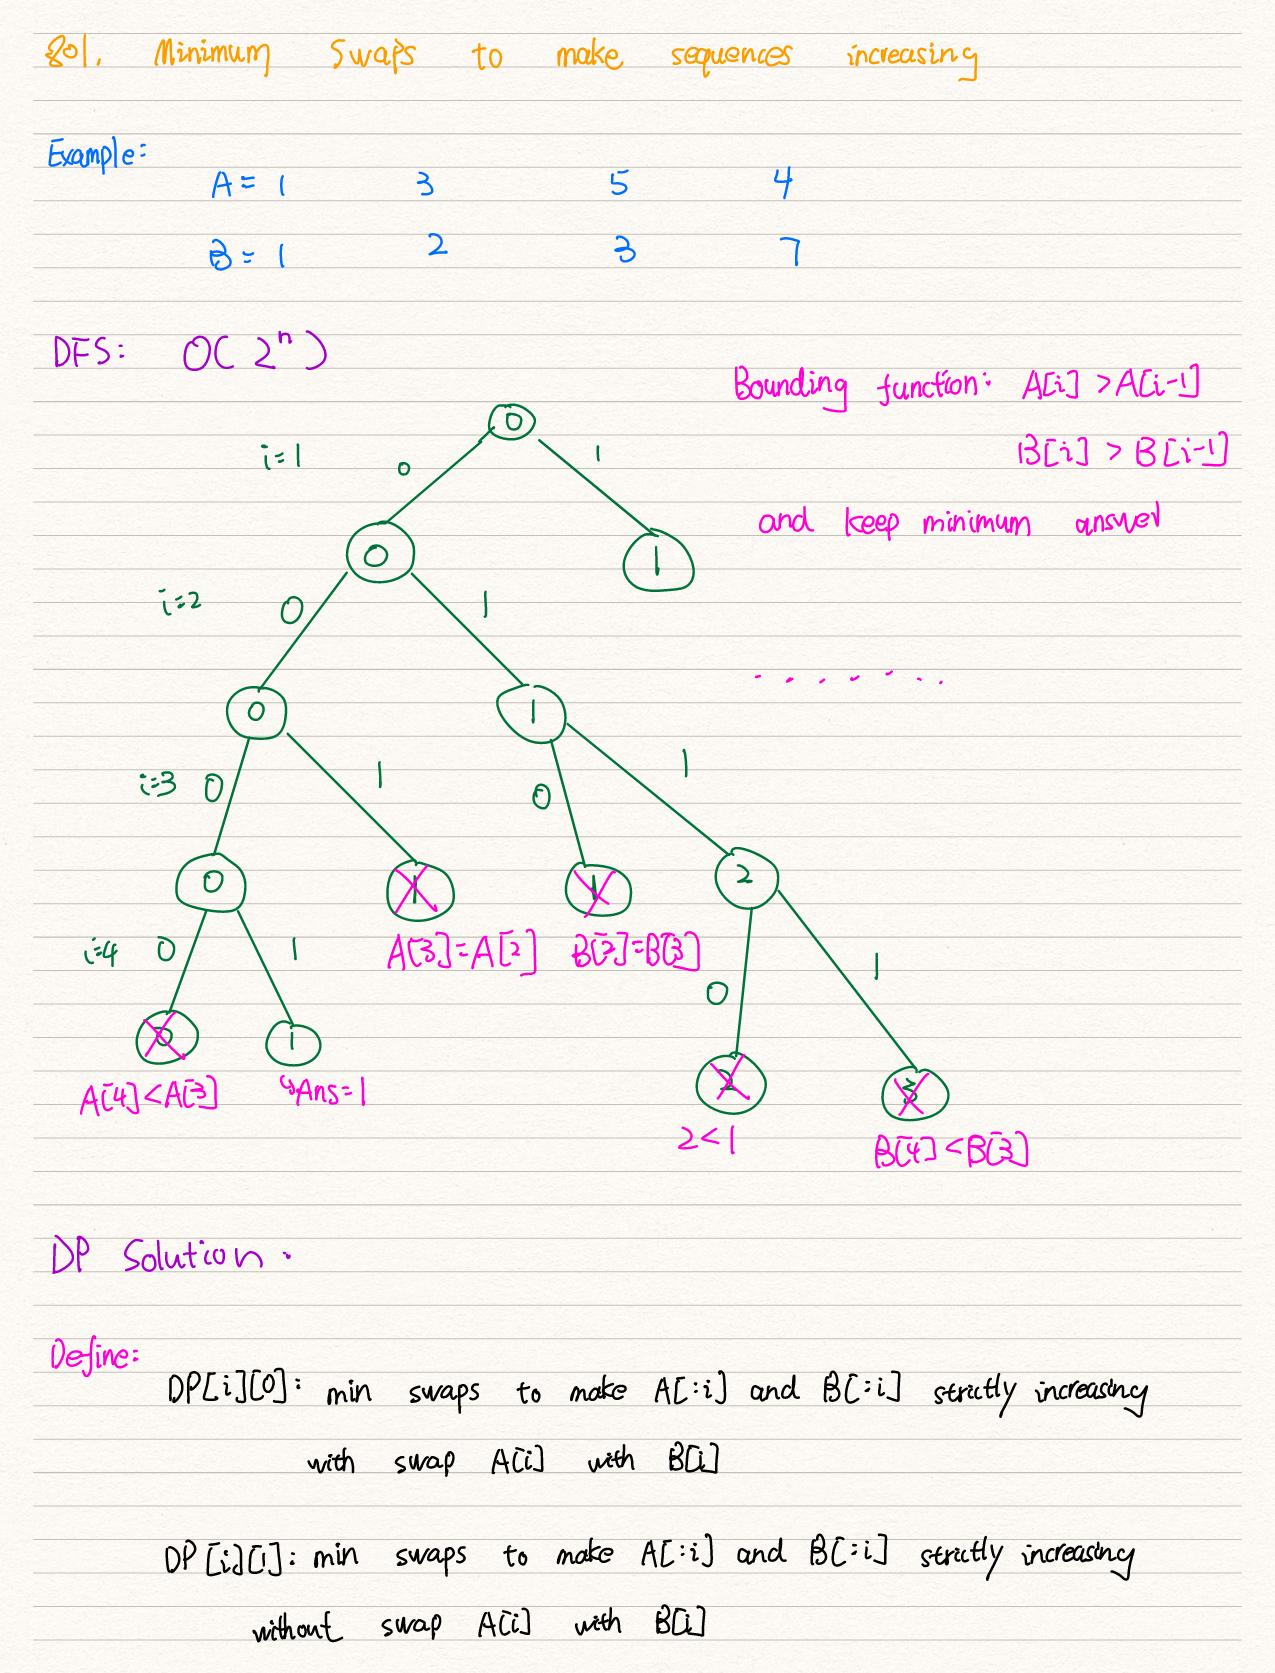 801. Minimum Swaps to make sequences increasing
Example:
A = 1 3 5 4
B = 1 2 3 7
DFS: O( 2^n )
Bounding function: A[i] > A[i-1]
B[i] > B[i-1]
and keep minimum answer
0
i=1 0 1
0 1
i=2 0 1
. . . . . . .
0 1
i=3 0 1 0 1
0 1 1 2
A[3]=A[2] B[2]=B[3]
i=4 0 1 0 1
0 1 2 3
A[4]<A[3] ↳Ans=1 2<1 B[4]<B[3]
DP Solution.
Define:
DP[i][0]: min swaps to make A[:i] and B[:i] strictly increasing
with swap A[i] with B[i]
DP[i][1]: min swaps to make A[:i] and B[:i] strictly increasing
without swap A[i] with B[i]